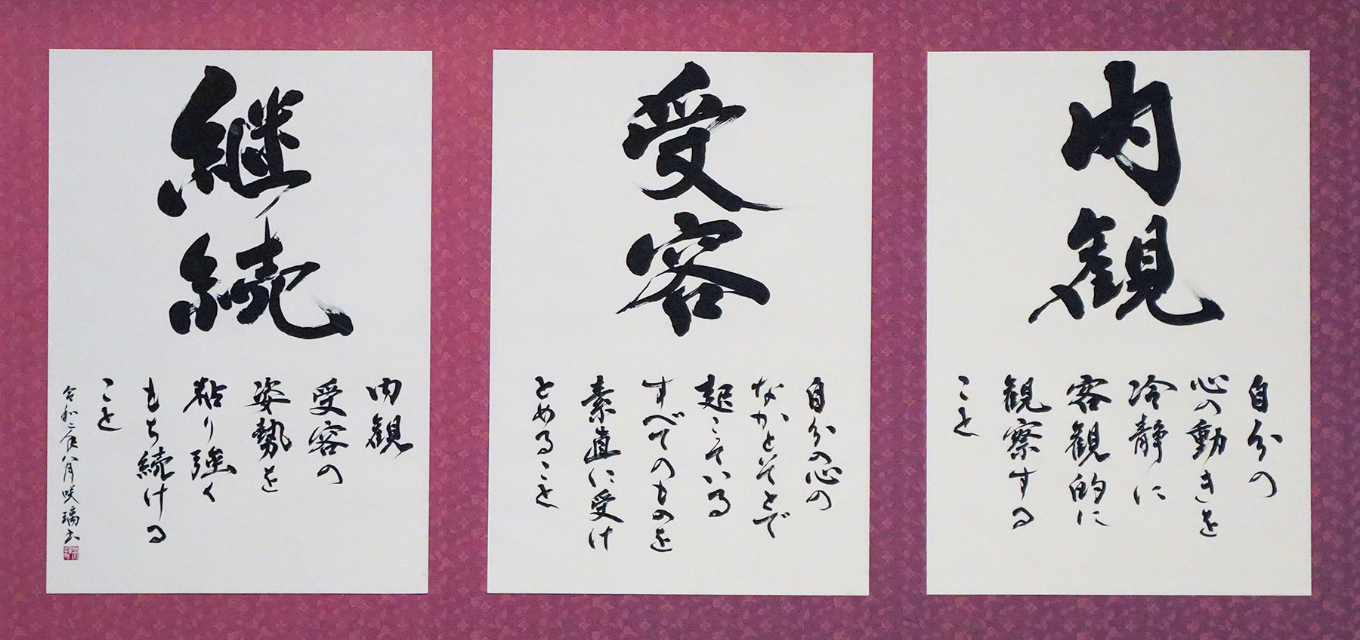 内観
自分の
心の動きを
冷静に
客観的に
観察する
こと
受容
自分の心の
なかとそとで
起こっている
すべてのものを
素直に受け
とめること
継続
内観
受容の
姿勢を
粘り強く
もち続ける
こと
令和二年八月咲璃書